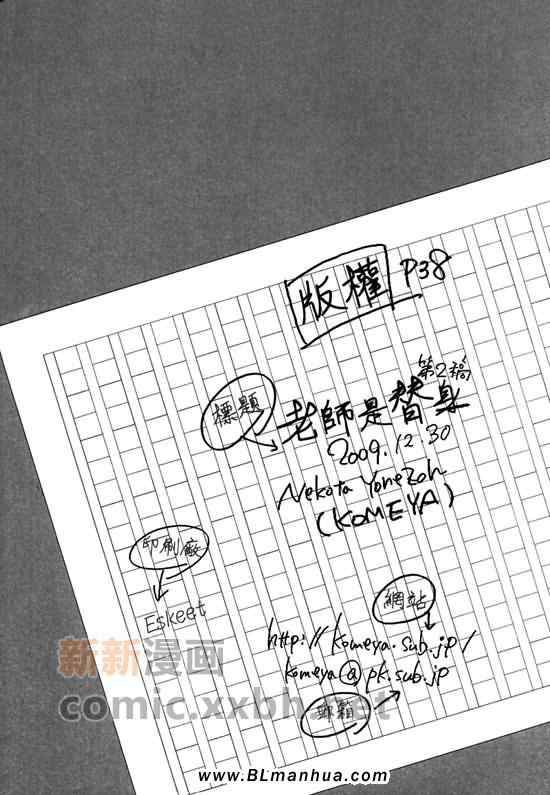 版權 P38
標題
老師是替身 第2稿
2009.12.30
Nekota YoneZoh
(KOMEYA)
印刷廠
Eskeet
網站
http://komeya.sub.jp/
komeya@pk.sub.jp
郵箱
新新漫画
comic.xxbh.net
www.BLmanhua.com